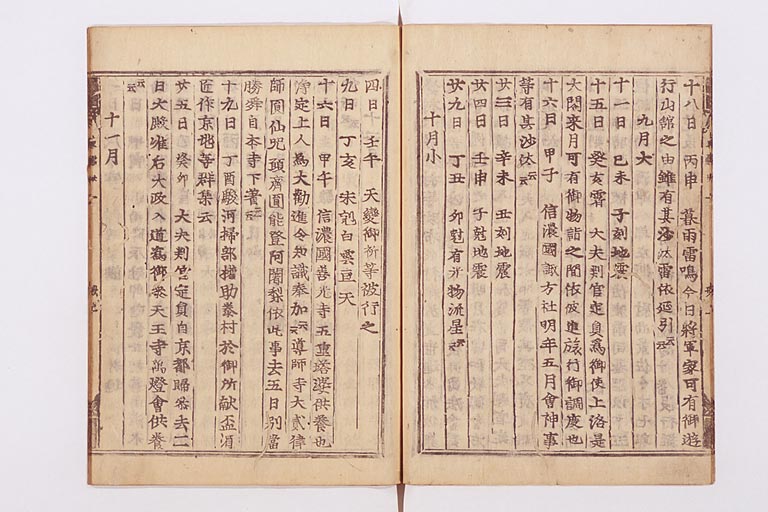 十八日 丙申 暮雨雷鳴今日將軍家可有御遊
行山館之由雖有其沙汰雷依延引云云
九月大
十一日 己未 子刻地震
十五日 癸亥 霽 大夫判官定員爲御使上洛是
大閤來月可有御物詣之間依被進旅行御調度也
十六日 甲子 信濃國諏方社明年五月會神事
等有其沙汰云云
廿三日 辛未 丑刻地震
廿四日 壬申 子尅地震
廿九日 丁丑 卯尅有光物流星云云
十月小
四日 壬午 天變御祈等被行之
九日 丁亥 朱尅白雲亘天
十六日 甲午 信濃國善光寺五重塔婆供養也
淨定上人爲大勸進令知識奉加云云導師寺大貳律
師圓仙咒頭齊圓能登阿闍梨依此事去五日別當
勝舜自本寺下著云云
十九日 丁酉 駿河掃部權助泰村於御所献盃酒
匠作京兆等群集云云
廿五日 癸卯 大夫判官定員自京都歸參去二
日大殿准右大政入道寫御參天王寺萬燈會供養
云云
十一月